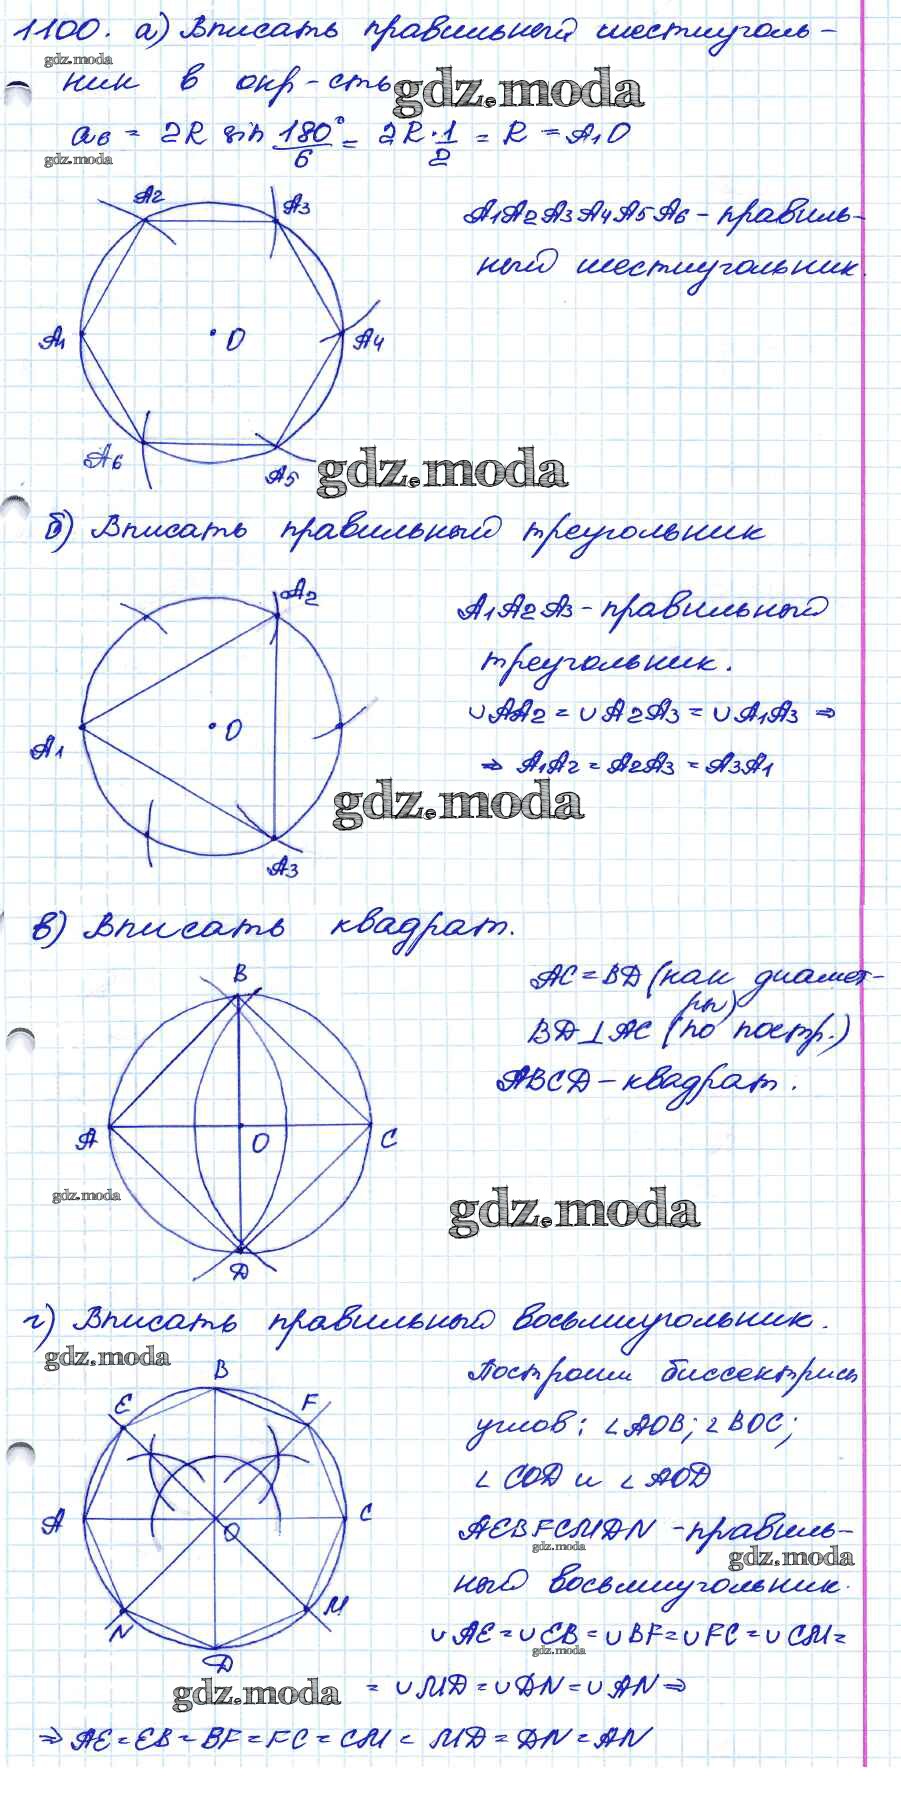 1100. а) Вписать правильный шестиуголь-
gdz.moda
ник в окр-сть
gdz.moda
a₆ = 2R sin 180°/6 = 2R · 1/2 = R = A₁O
gdz.moda
A₂
A₃
A₁A₂A₃A₄A₅A₆ - правиль-
ный шестиугольник.
A₁
O
A₄
A₆
A₅
gdz.moda
б) Вписать правильный треугольник
A₂
A₁A₂A₃ - правильный
треугольник.
∪AA₂ = ∪A₂A₃ = ∪A₁A₃ ⇒
A₁
O
⇒ A₁A₂ = A₂A₃ = A₃A₁
gdz.moda
A₃
в) Вписать квадрат.
B
AC = BD (как диамет-
ры)
BD ⊥ AC (по постр.)
ABCD - квадрат.
A
O
C
gdz.moda
gdz.moda
D
г) Вписать правильный восьмиугольник.
gdz.moda
B
E
F
Построим биссектрисы
углов: ∠AOB; ∠BOC;
∠COD и ∠AOD
A
O
C
AEBFCMDN - правиль-
gdz.moda
gdz.moda
ный восьмиугольник.
N
M
D
∪AE = ∪EB = ∪BF = ∪FC = ∪CM =
gdz.moda
gdz.moda
= ∪MD = ∪DN = ∪AN ⇒
⇒ AE = EB = BF = FC = CM = MD = DN = AN